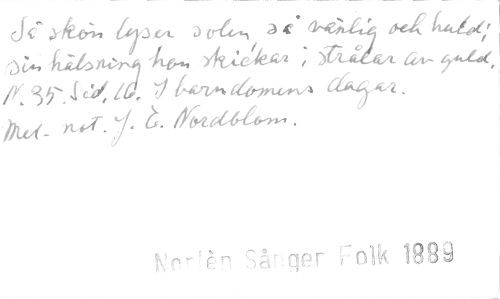 Så skön lyser solen, så vänlig och huld;
sin hälsning hon skickar i strålar av guld.
N. 35. Sid. 16. I barndomens dagar.
Mel- not. J. E. Nordblom.
Norlèn Sånger Folk 1889